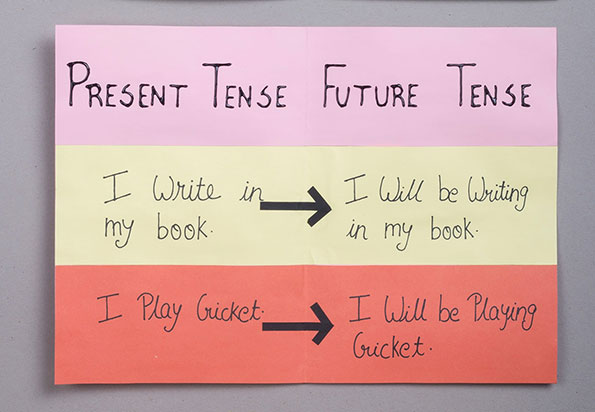 PRESENT TENSE FUTURE TENSE
I Write in
my book.
I Will be Writing
in my book.
I Play Cricket.
I Will be Playing
Cricket.